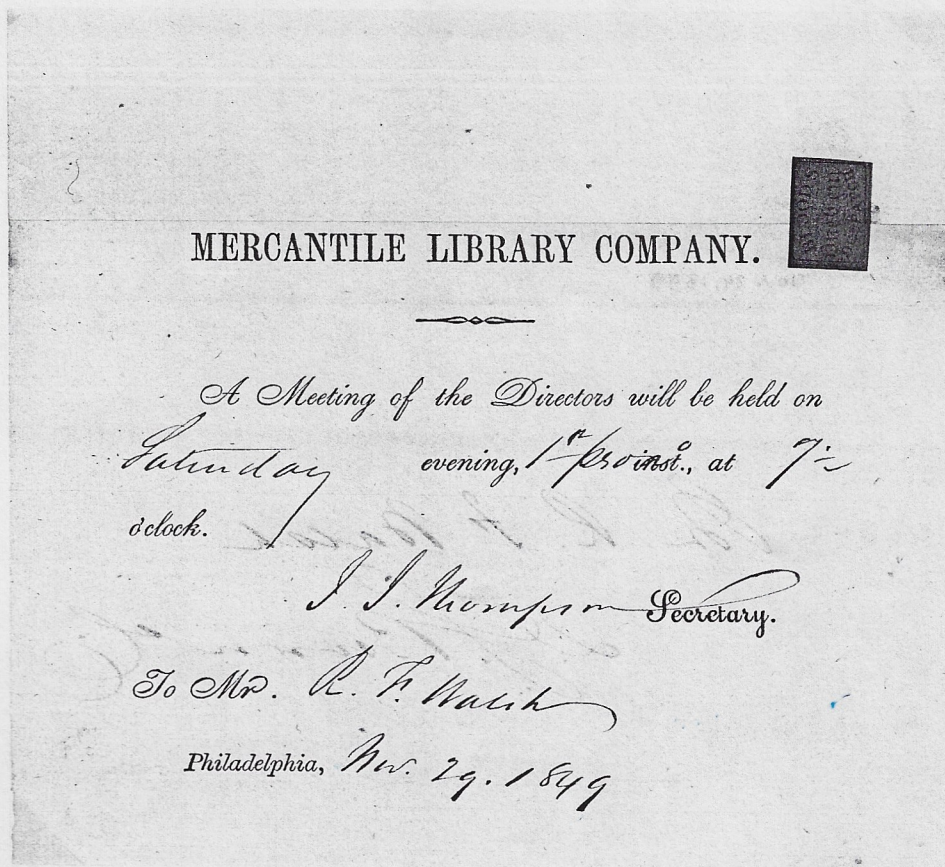 MERCANTILE LIBRARY COMPANY.
A Meeting of the Directors will be held on
Saturday evening, 1st pro inst., at 7½
o'clock.
J. J. Thompson Secretary.
To Mr. R. F. Walsh
Philadelphia, Nov. 29. 1849